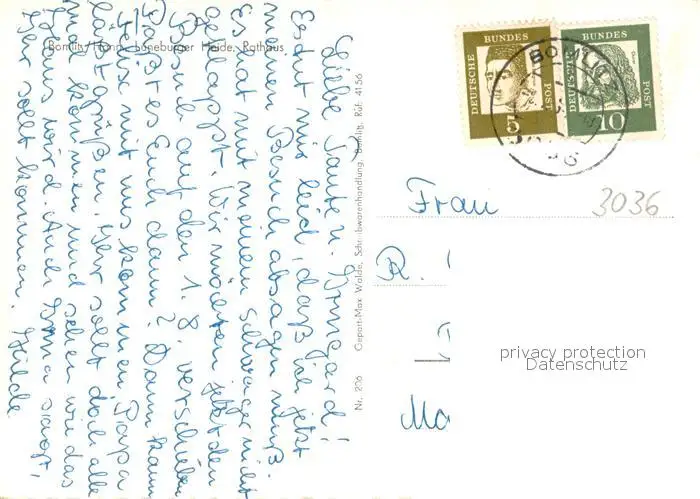 Bomlitz/Hann., Lüneburger Heide, Rathaus
Liebe Tante u. Irmgard!
Es tut mir leid, daß ich jetzt
meinen Besuch absagen muß
Es hat mit meinem Schwager nicht
geklappt. Wir möchten jetzt den
Besuch auf den 1.8. verschieben
Paßt es Euch dann? Dann kann
mit uns kommen. Papa
läßt grüßen. Ihr sollt doch alle
mal kommen und sehen wie das
Haus wird. Auch Oma sagt,
Ihr sollt kommen. Hilde
Nr. 206 Gepatt-Max Walde, Schreibwarenhandlung, Bomlitz, Ruf: 4156
DEUTSCHE BUNDES POST
5
DEUTSCHE BUNDES POST
10
BOMLITZ
Frau
3036
R.
Ma
privacy protection
Datenschutz